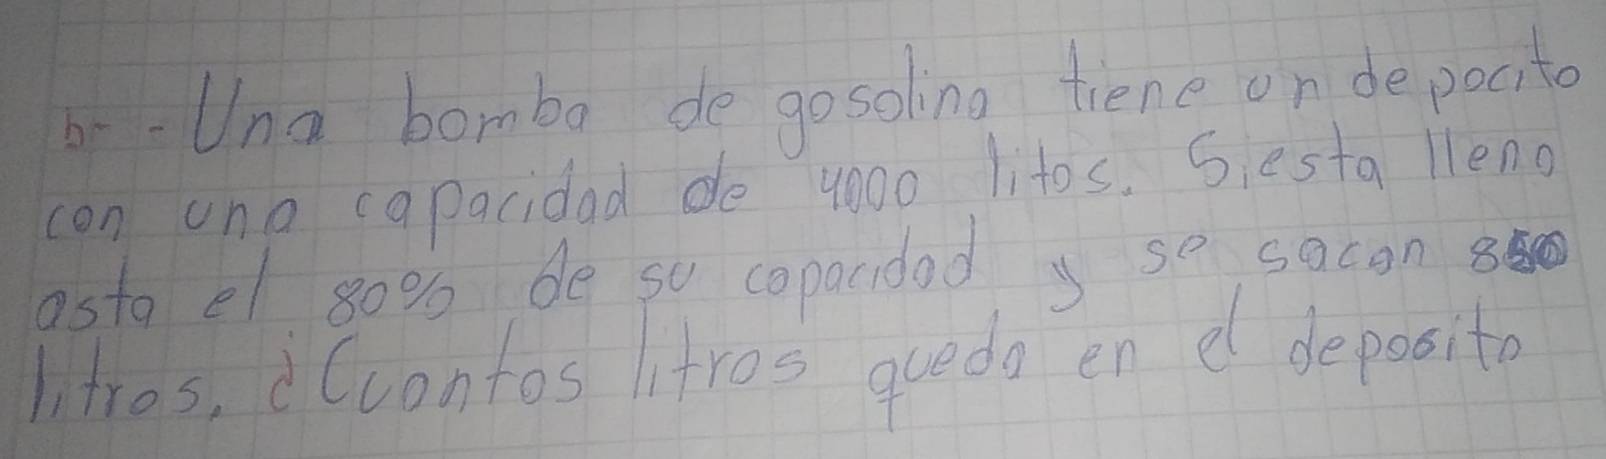 b- - Una bomba de gosolina tiene un depocito
con una capacidad de 4000 litos. Si esta lleno
asta el 80% de su capacidad y se sacan 850
litros. ¿Cuantos litros queda en el deposito